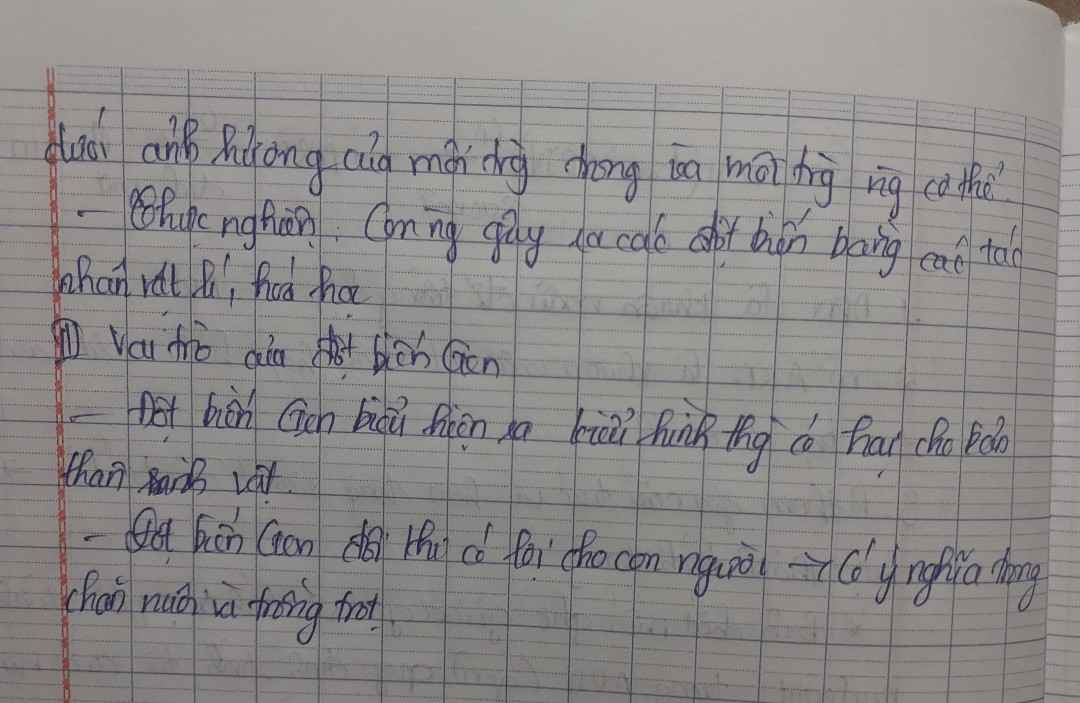 dưới ảnh hưởng của môi trg trong và môi trg ng cơ thể.
- Thực nghiệm: Con ng gây ra các đột biến bằng các tác
nhân vật lí, hoá học
II) Vai trò của đột biến Gen
- Đột biến Gen biểu hiện ra kiểu hình thg có hại cho bản
thân sinh vật.
- Đột biến Gen đôi khi có lợi cho con người → Có ý nghĩa trong
chăn nuôi và trồng trọt